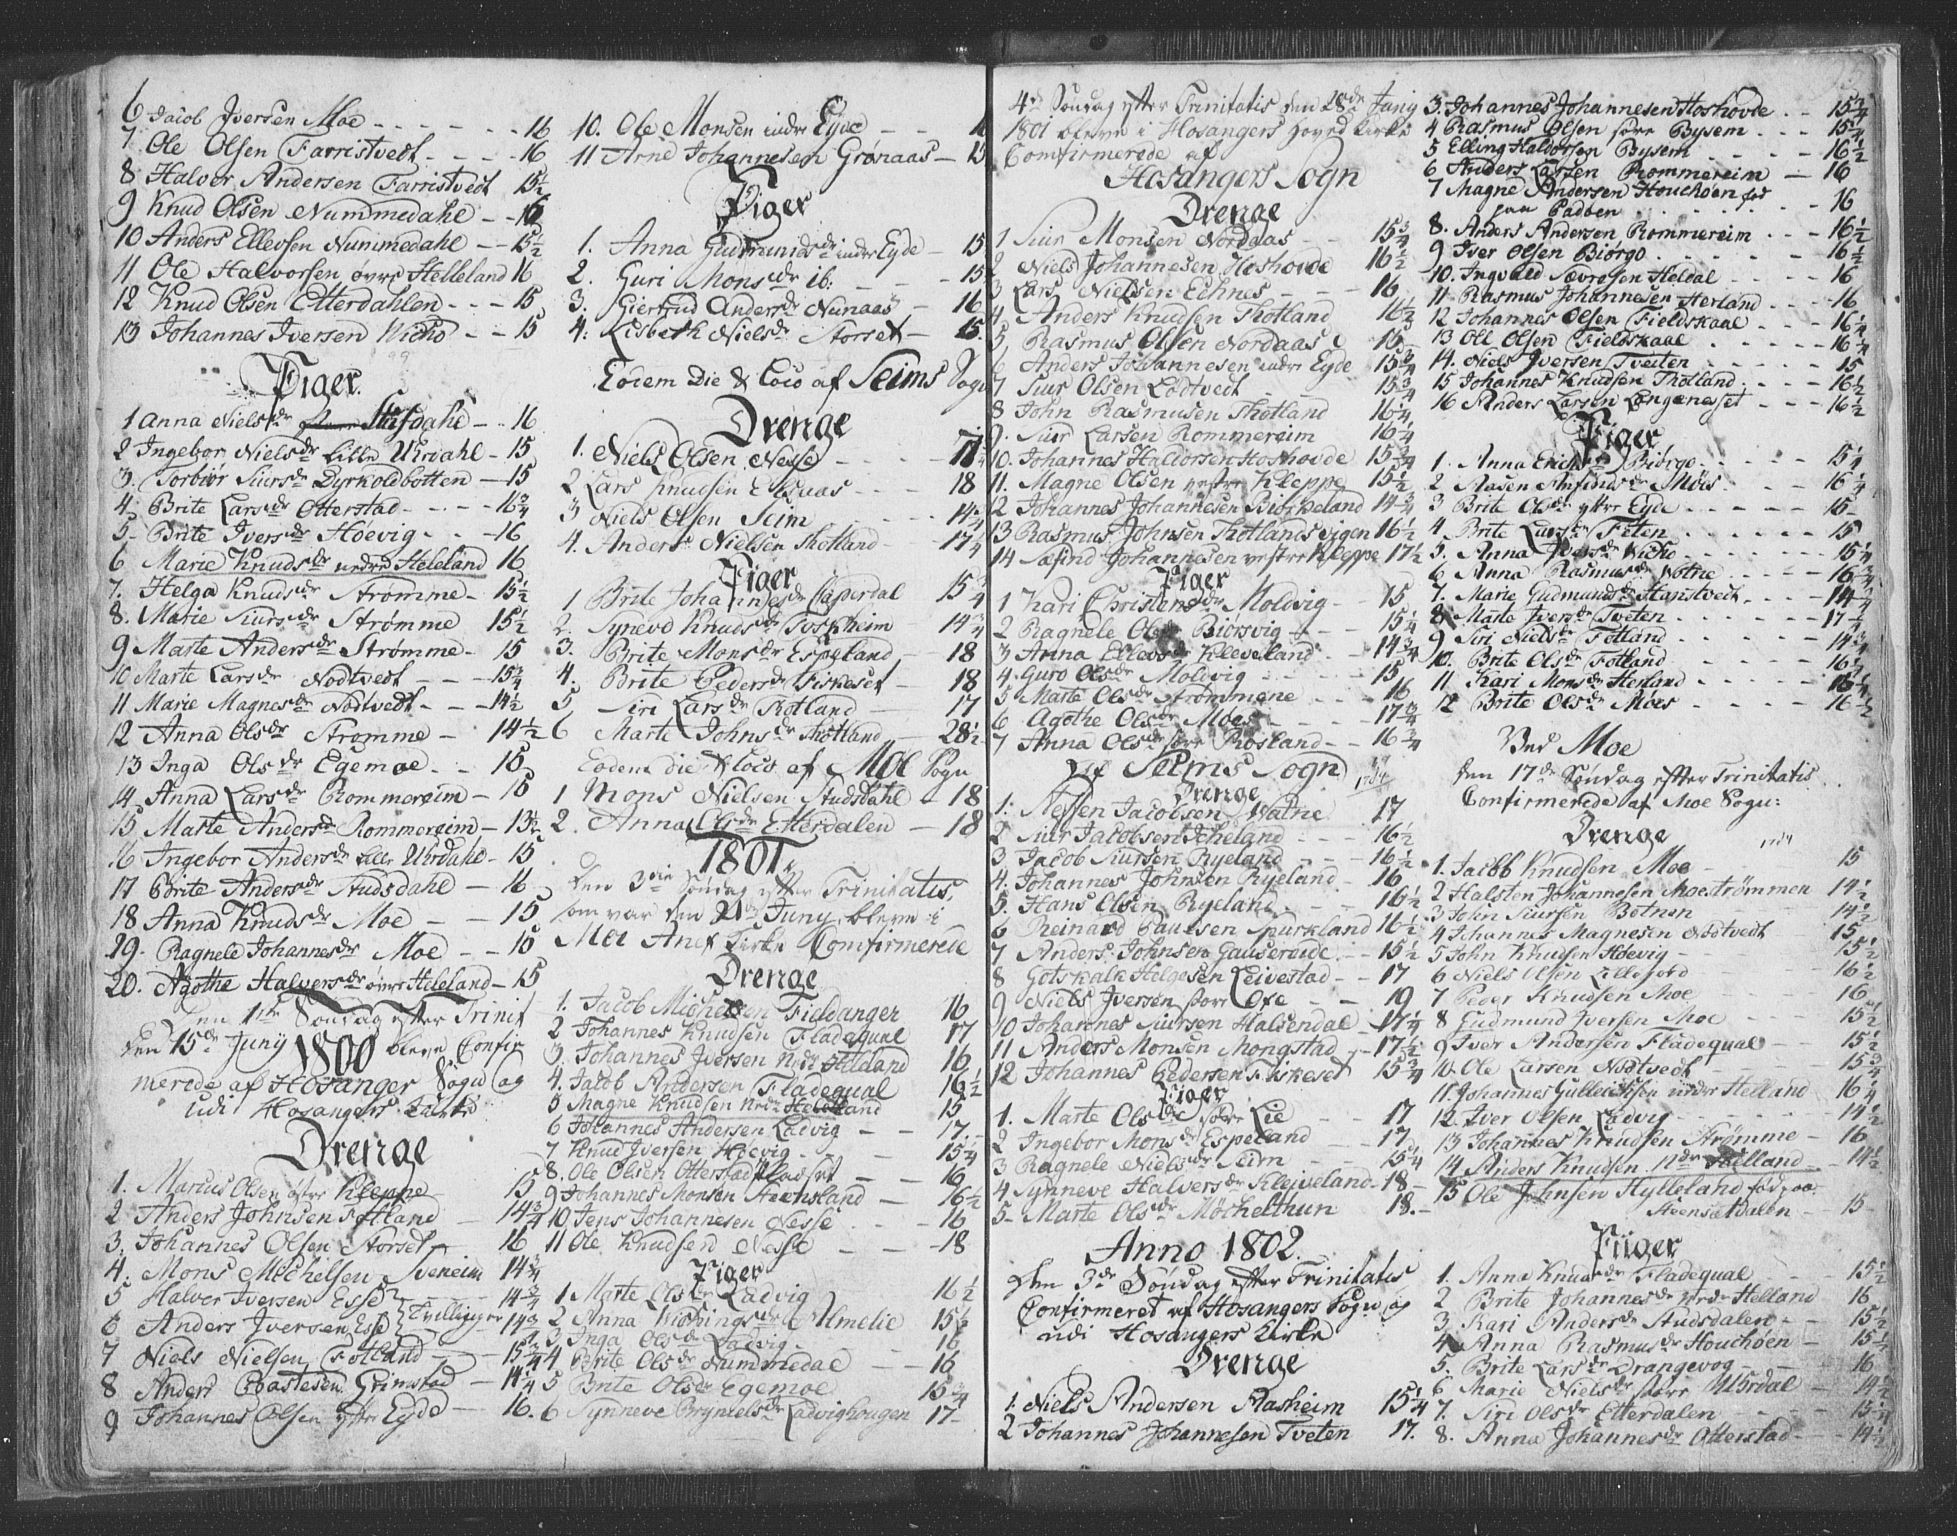 6 Jacob Iversen Moe - - - - 16
7. Ole Olsen Farristvedt - - - 16
8 Halvor Andersen Farristvedt 15½
9 Knud Olsen Nummedahl - - 16
10 Anders Ellevsen Nummedahl - - 15½
11 Ole Halvorsen øvre Helleland 16
12 Knud Olsen Etterdahlen - - - 15
13 Johannes Iversen Wicho - - 15
Piger
1 Anna Nielsdr - 16
2 Ingebor Nielsdr Lille Urdahl - 15
3. Torbiør Siursdr Dyrkoldbotten - 15
4. Brite Larsdr Otterstad - - - 16¾
5. Brite Iversdr Høevig - - - 16
6 Marie Knudsdr nedre Heleland 16
7. Helga Knudsdr Strømme - 15½
8. Marie Siursdr Strømme 15½
9 Marte Andersdr Strømme - 15
10 Marte Larsdr Nodtvedt - - 15¾
11 Marie Magnesdr Nodtvedt - - 14½
12 Anna Olsdr Strømme - 14½
13 Inga Olsdr Egemoe - - 16
14. Anna Larsdr Rommereim - 16
15 Marte Andersdr Rommereim - 13¾
16 Ingebor Andersdr lille Urdahl - 15
17 Brite Andersdr Studsdahl - 16
18 Anna Knudsdr Moe - - 15
19. Ragnele Johannesdr Moe - - 16
20. Agothe Halversdr øvre Heleland - 15
Den 1ste Søndag efter Trinit
den 15de Juny 1800 bleve Confir
merede af Hosanger Sogn og
udi Hosangers Kirke
Drenge
1. Marcus Olsen østre Kleppe 15
2 Anders Johnsen Fotland - 14¾
3. Johannes Olsen Storset - 16
4. Mons Michelsen Sveneim 14¾
5 Halver Iversen Esse - - 14¾
6 Anders Iversen Esse Tvillinger 14¾
7 Niels Nielsen Fotland - - 15¼
8 Anders Baastesen Grimstad - 14¼
9 Johannes Olsen yttre Eyde - 16.
10. Ole Monsen indre Eyde - -
11 Arne Johannesen Grønaas - 15
Piger
1. Anna Gudmundsdr indre Eyde - 15
2. Guri Monsdr ib. - - - - 15
3. Giertrud Andersdr Nunaas - 16
4. Lisbeth Nielsdr Storset - 15.
Eodem Die & Loco af Seims Sogn
Drenge
1. Niels Olsen Nesse - - -
2 Lars Knudsen Elsaas - - - 18
3 Niels Olsen Seim - - - 14¾
4. Anders Nielsen Skotland - - 17¼
Piger
1 Brite Johannesdr Caperdal 15¾
2 Synevd Knudsdr 14¾
3. Brite Monsdr Espeland - 18
4. Brite Pedersdr Fiskeset - 18
5 Siri Larsdr Skotland - - 17
6 Marte Johnsdr Skotland - 28½
Eodem die & Loco af Moe Sogn
1 Mons Nielsen Studsdahl - 18
2. Anna Olsdr Etterdalen - 18
1801
Den 3die Søndag efter Trinitatis,
som var den 21de Juny, bleve i
Moe Anex Kirke Comfirmerede
Drenge
1. Jacob Michelsen Fieldanger 16
2 Johannes Knudsen Fladequal 17
3. Johannes Iversen Nedr Helland 16
4. Jacob Andersen Fladequal 16½
5 Magne Knudsen Nedr Helland 15
6 Johannes Andersen Ladvig - - 17.
7 Knud Iversen Høevig - - - 15¼
8. Ole Olsen Otterstad Pladset - 16
9 Johannes Monsen Steensland - - 16½
10. Jens Johannesen Nesse - - - 16
11 Ole Knudsen Nesse - - - 18
Piger
1 Marte Olsdr Ladvig 16½
2 Anna Wichingsdr Amelie 15½
3 Inga Olsdr Ladvig - - 16
4 Brite Olsdr Nummedal - 16
5 Brite Olsdr Egemoe 15¾
6 Synneve Bryniels dr Ladvighougen 17
4de Søndag efter Trinitatis den 28de Juny
1801 bleve i Hosangers hoved Kirke
Comfirmerede af
Hosangers Sogn
Drenge
1 Siur Monsen Nordaas - - 15¾
2 Niels Johannesen Hoshovde 16½
3 Lars Nielsen Echnes - - - 16
4 Anders Knudsen Skotland 16½
5. Rasmus Olsen Nordaas 16
6 Anders Johannesen indr Eyde 15¾
7 Siur Olsen Lødtvedt - - 15¾
8 John Rasmusen Skotland 16¼
9. Siur Larsen Rommereim 16¼
10. Johannes Haldorsen Hoshovde 15¾
11. Magne Olsen vestre Kleppe 15½
12 Johannes Johannesen Biorkeland 14¾
13 Rasmus Johnsen Skotlands eigen 16½
14 Sæfind Johannesen vestre Kleppe 17½
Piger
1 Kari Christensdr Moldvig - 15
2 Ragnele Olsdr Biørsvig - - 15¼
3 Anna Ellevsdr Kleveland - 14¾
4 Guro Olsdr Moldvig - - - 15
5 Marte Olsdr Strømmene - - 16
6 Agothe Olsdr Moes - - - 17¾
7 Anna Olsdr store Rosland - - 16¾
Af Seims Sogn
Drenge
1. Nessen Jacobsen Watne 17
2 Siur Jacobsen Icheland - - 16½
3 Jacob Siursen Ryeland - - 16½
4. Johannes Johnsen Ryeland - 16
5. Hans Olsen Ryeland - - - 16½
6 Reinard Paulsen Spurkland 16½
7 Anders Johnsen Gausereide - - 15½
8 Gotskalk Helgesen Leivestad - - 17
9 Niels Iversen store Oxe - - 19
10 Johannes Siursen Halsendal - 17¼
11 Anders Monsen Mongstad - - 17½
12 Johannes Pedersen Fiskeset 15¾
Piger
1. Marte Olsdr store Lie - 17
2 Ingebor Monsdr Espeland 17
3 Ragnele Nielsdr Seim - - 15¼
4 Synneve Halversdr Klejveland - 18 -
5 - Marte Olsdr Møchelthun 18. -
Anno 1802.
Den 3de Søndag efter Trinitatis
Confirmeret af Hosangers Sogn og
udi Hosangers Kirke
Drenge
1. Niels Andersen Aasheim 15¼
2 Johannes Johannesen Tveten 17.
3. Johannes Johannesen Hoshovde - - 15¾
4 Rasmus Olsen store Bysem - - 15¾
5 Elling Haldorsen Bysem - - - 16½
6 Anders Larsen Rommereim - 16
7 Magne Andersen Houchøen fød
paa Padøen - - - - - 16
8. Anders Andersen Rommereim - - - 16½
9 Iver Olsen Biørgo - - - - 16½
10. Ingvald Sævresen Heldal - - - 16
11 Rasmus Johannesen Herland - - - 16
12 Johannes Olsen Fieldskaal - - - 16¼
13 Ole Olsen Fieldskaal - - - - 16¼
14. Niels Iversen Tveiten - - - - 15
15 Johannes Knudsen Skotland - - - 16½
16 Anders Larsen Langenesset - - - 16½
Piger
1. Anna Erichsdr Biørgo - - - - 15¼
2 Aasen Amfindsdr Møes - - - - 16¼
3 Brite Olsdr yttre Eyde - - - 15 -
4. Brite Larsdr Feten - - - - - 15
5. Anna Iversdr Wicho - - - - - 15¼
6 Anna Rasmusdr Watne - - - - 16¾
7. Marie Gudmundsdr Hanstvedt - - - 14¾
8 Marte Iversdr Tveten - - - - 17¼
9 Siri Nielsdr Fotland - - - - 14¾
10. Brite Olsdr Fotland - - - - 16½
11 Kari Monsdr Herland - - - - 16¼
12 Brite Olsdr Møes - - - - 16½
Ved Moe
den 17de Søndag efter Trinitatis
Confirmerede af Moe Sogn:
Drenge
1. Jacob Knudsen Moe - - 15
2 Halsten Johannesen Moestrømmen 14½
3 John Siursen Botnen 14½
4 Johannes Magnesen Nodtvedt 15
5 John Knudsen Høevig - - 15½
6 Niels Olsen Lillefjord 16½
7 Peder Knudsen Moe 16
8 Gudmund Iversen Moe - - 15½
9 Iver Andersen Fladequal - - 15½
10. Ole Larsen Nodtvedt - - 15¾
11. Johannes Gulleichsen under Helland 16¼
12. Iver Olsen Ladvig - - - - 14½
13 Johannes Knudsen Strømme - 16
14 Anders Knudsen Ndr Helland - 14½
15 Ole Johnsen Hylleland fød paa
Steensætdalen - - 15 -
Piiger
1. Anna Knudsdr Fladequal - 15½
2 Brite Johannesdr Nedr Helland 16
3. Kari Andersdr Studsdalen - - 15½
4 Anna Rasmusdr Houchøen - - 15½
5. Brite Larsdr Drangevog - - - 16
6 Marie Nielsdr store Uhrdal - 14½
7. Siri Olsdr Etterdalen - - - 15¼
8. Anna Johannesdr Otterstad - - 14½